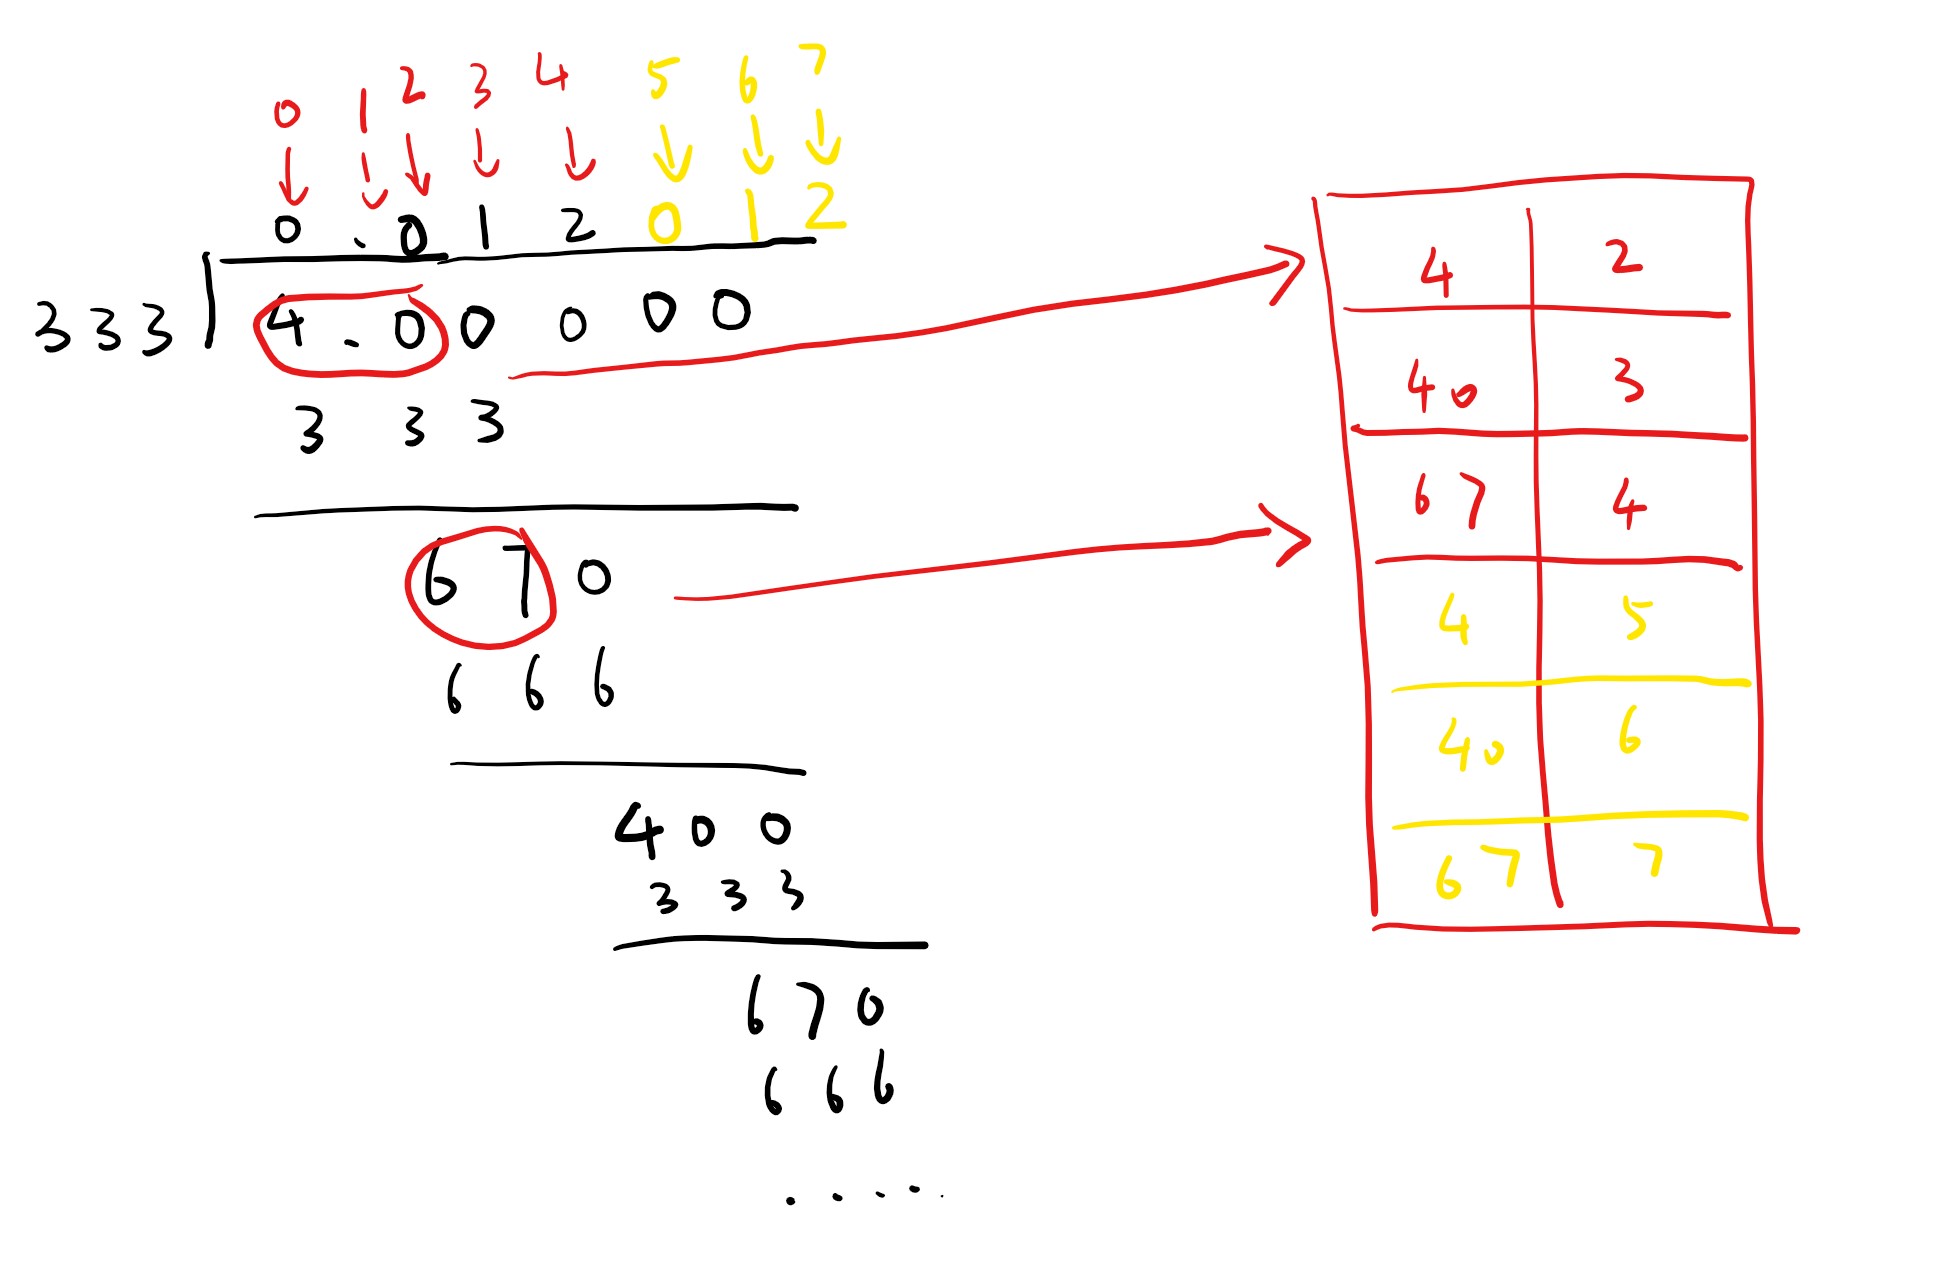 0 1 2 3 4 5 6 7
0 . 0 1 2 0 1 2
333 4.00000
333
670
666
400
333
670
666
.....
4 2
40 3
67 4
4 5
40 6
67 7